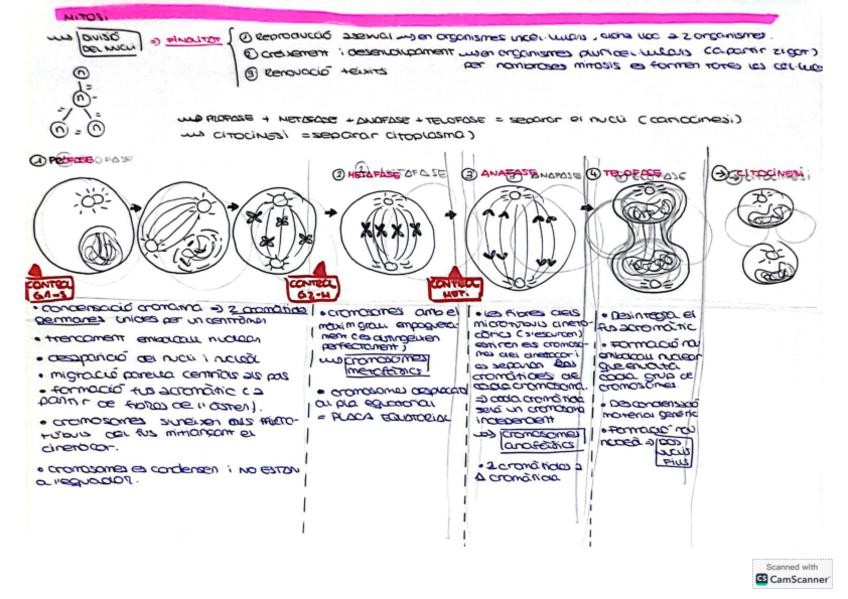 MITOSI
DIVISÓ DEL NUCLI => FINALITAT
① Reproducció asexual en organismes unicel·lulars, dona lloc a 2 organismes.
② Creixement i desenvolupament en organismes pluricel·lulars (a partir zigot)
per nombroses mitosis es formen totes les cèl·lules
③ Renovació teixits
n
n
n n
PROFASE + METAFASE + ANAFASE + TELOFASE = separar el nucli (cariocinesi)
CITOCINESI = separar citoplasma)
① PROFASE
② METAFASE
③ ANAFASE
④ TELOFASE
CITOCINESI
CONTROL G1-S
CONTROL G2-M
CONTROL MET.
• condensació cromatina => 2 cromàtides
germanes unides per un centròmer
• trencament embolcall nuclear
• desaparició del nucli i nuclèol
• migració parella centríols als pols
• formació fus acromàtic (a
partir de fibres de l'àster).
• cromosomes s'uneixen als micro-
túbuls del fus mitjançant el
cinetocor.
• cromosomes es condensen i NO ESTAN
a l'equador.
• cromosomes amb el
màxim grau empaqueta-
ment (es distingeixen
perfectament)
cromosomes
metafàsics
• cromosomes
al pla equatorial
= PLACA EQUATORIAL
• les fibres dels
microtúbuls cineto-
còrics (s'escurcen)
estiren els cromoso-
mes del cinetocor i
es separen les
cromàtides de
cada cromosoma.
=> cada cromàtida
serà un cromosoma
independent
cromosomes
anafàsics
• 2 cromàtides a
1 cromàtida
• Desintegra el
fus acromàtic
• Formació nou
embolcall nuclear
que envolta
cada grup de
cromosomes
• Descondensació
material genètic
• Formació nou
nuclèol => DOS
NUCLIS
FILLS
Scanned with
CS CamScanner